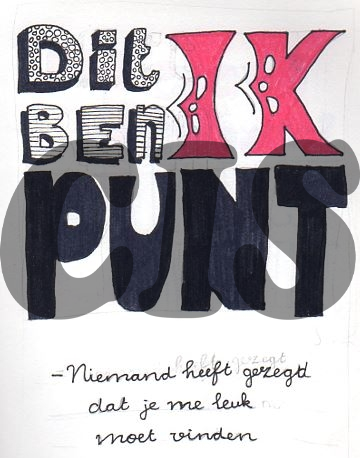 Dit IK
BEN
PUNT
-Niemand heeft gezegd
dat je me leuk
moet vinden